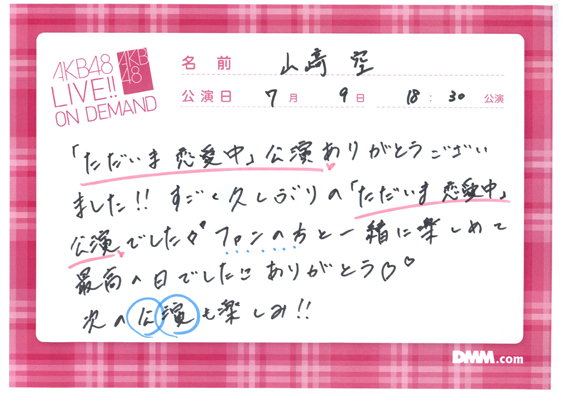 AKB48
LIVE!!
ON DEMAND
AKB
48
名前 山﨑 空
公演日 7月 9日 18:30 公演
「ただいま 恋愛中」公演ありがとうござい
ました!! すごく久しぶりの「ただいま 恋愛中」
公演でした♂ ファンの方と一緒に楽しめて
最高の日でした!! ありがとう♡♡
次の公演も楽しみ!!
DMM.com